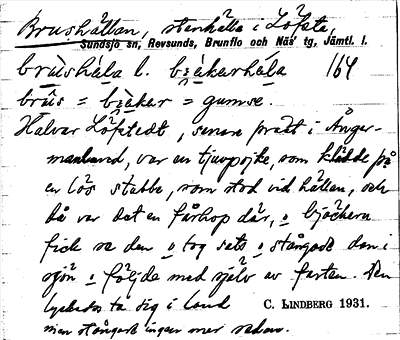 Brushällan, stenhälla i Löfsta,
Sundsjö sn, Revsunds, Brunflo och Näs' tg, Jämtl. l.
brùshȧla l. bɪ̀äkerhȧla 164
brùs = bɪ̀äker = gumse.
Halvar Löfstedt, senare präst i Ånger-
manland, var en tjuvpojke, som klädde på
en lös stabbe, som stod vid hällan, och
då var det en fårhop där, o bjäckern
fick se den o tog sats o stångade den i
sjön o följde med själv av farten. Den
lyckades ta sig i land C. LINDBERG 1931.
men stångade ingen mer sedan.